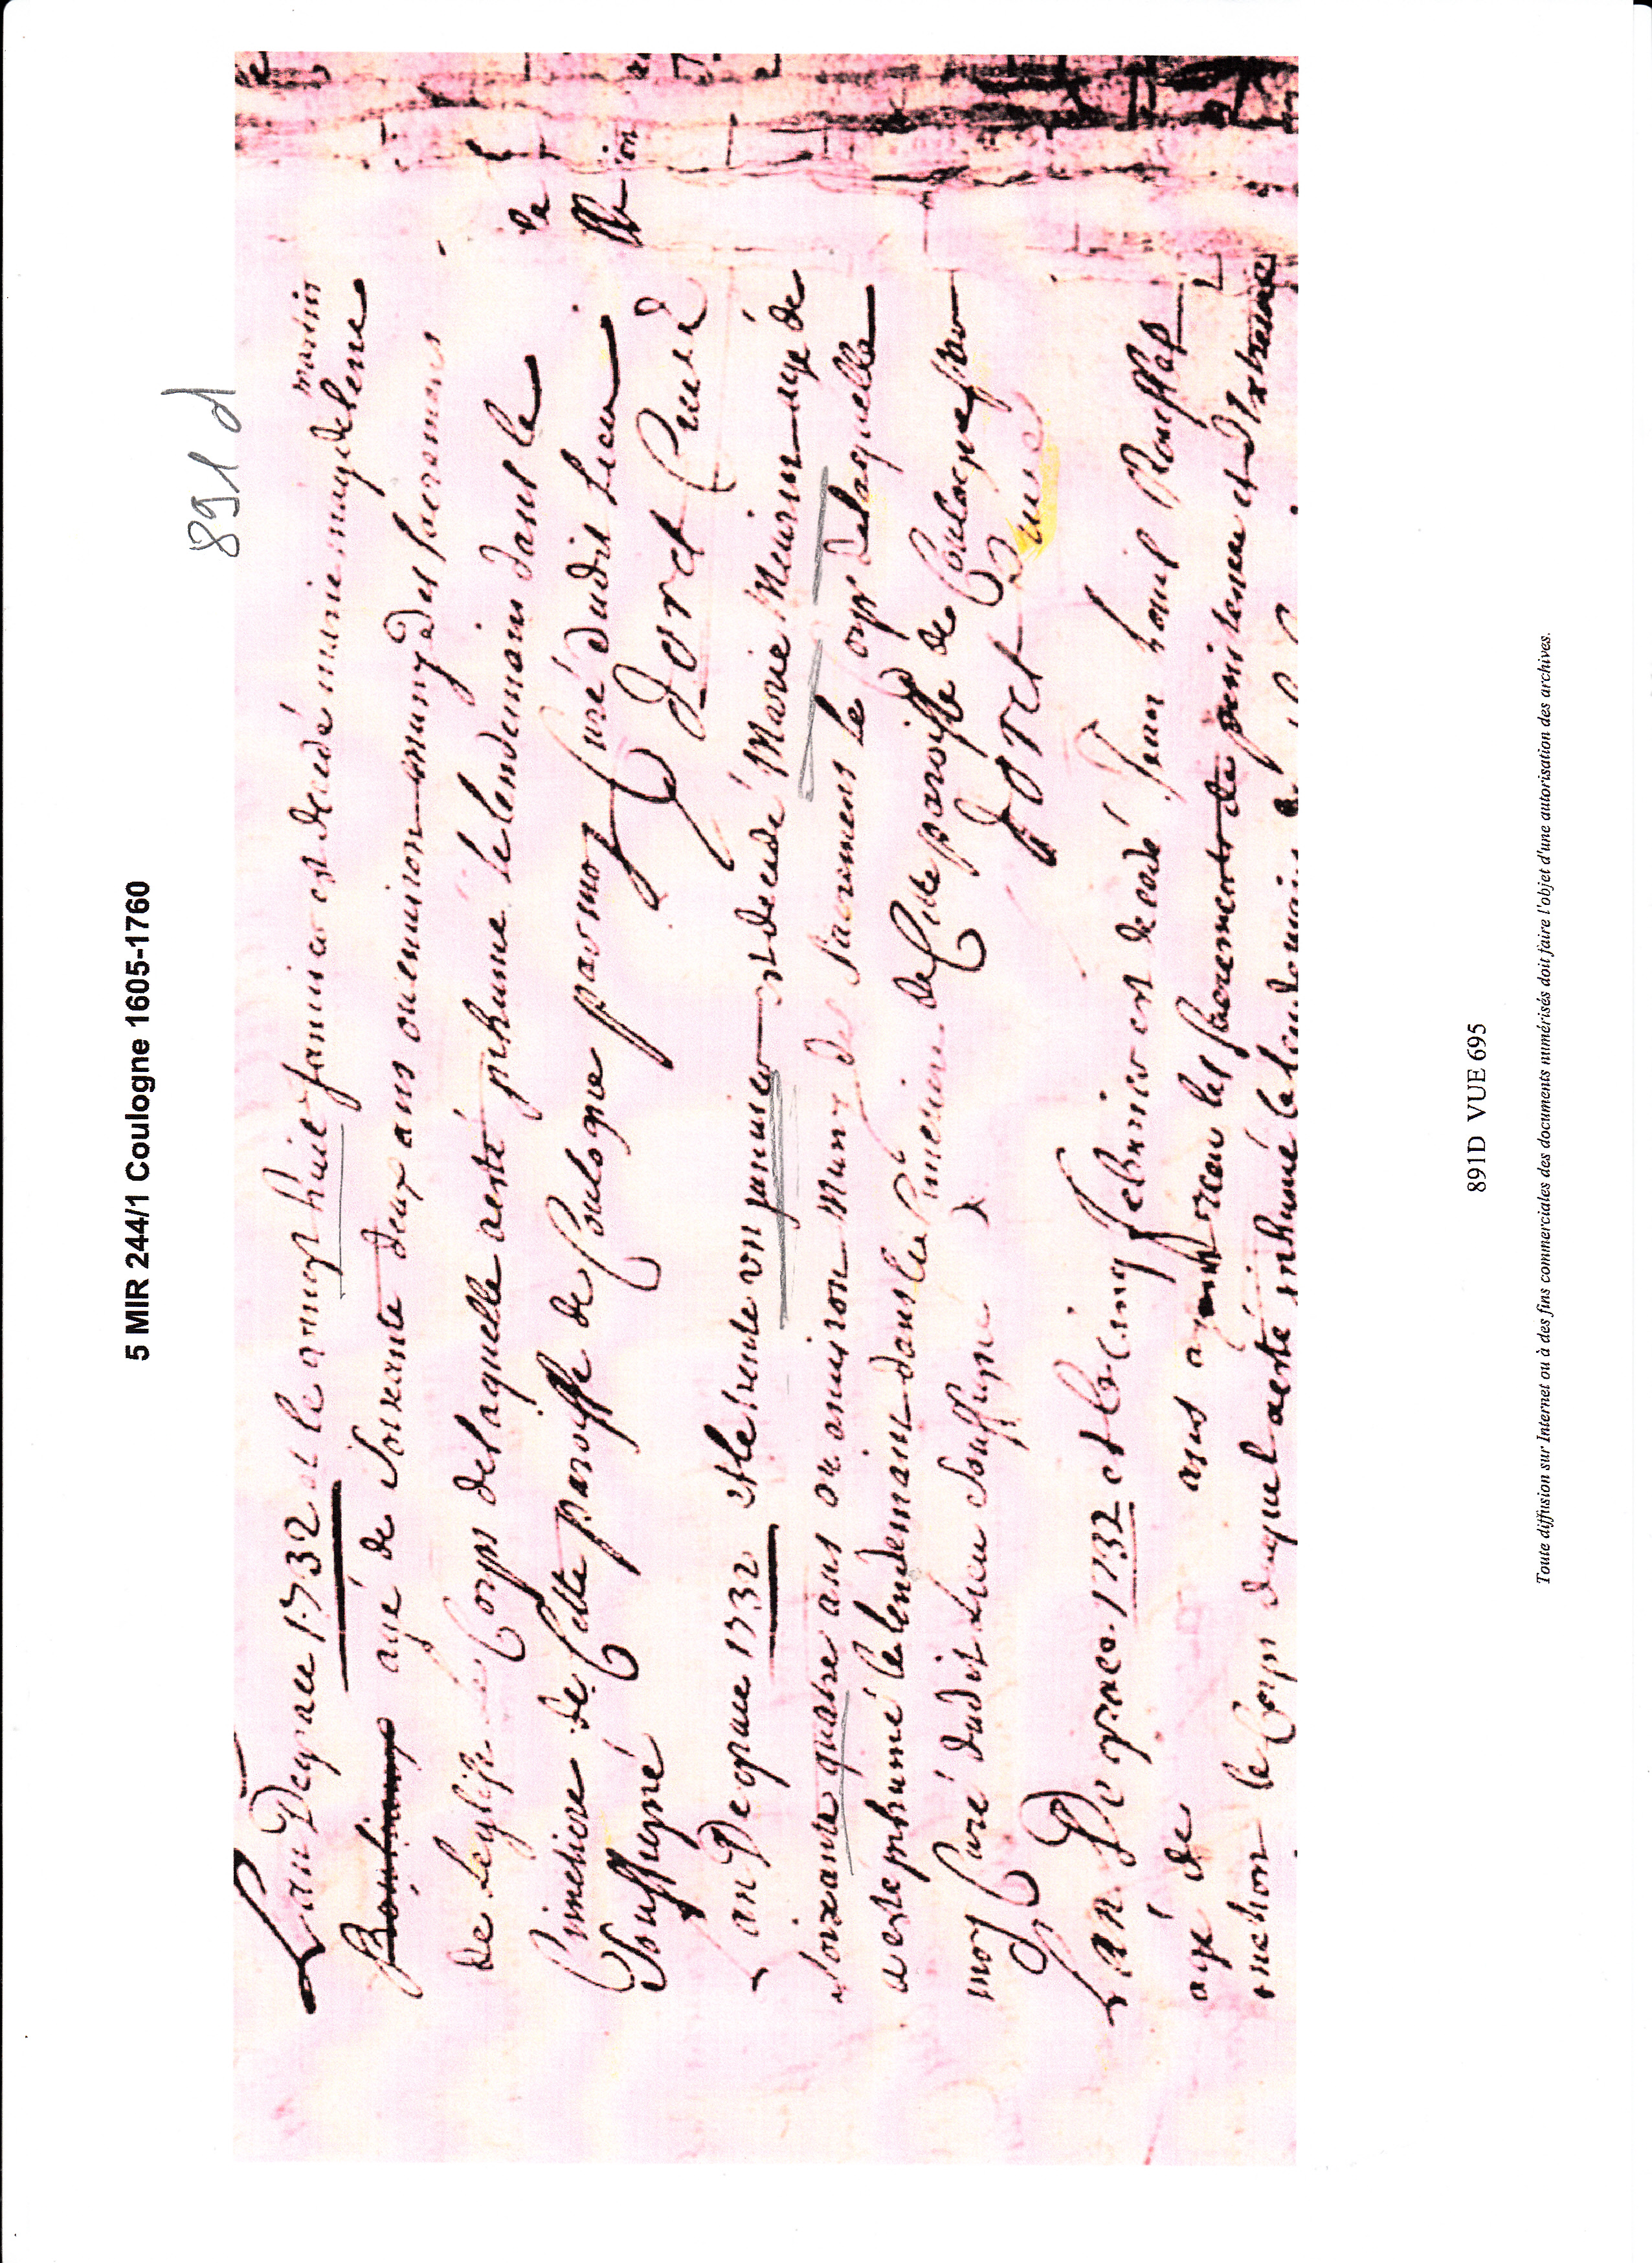 5 MIR 244/1 Coulogne 1605-1760
891 d
Lan De grace 1732 et le huit janvier est decedé marie magdelene martin
agé de soixante deux ans ou environ muny des sacremens
De Leglise le Corps delaquelle aesté inhumé le lendemain dans le
Cimetiere de Cette paroisse de Coulogne par moy Curé dudit Lieu
Soussigné Doret Curé
Lan De grace 1732 et le trente un janvier est decedé Marie Meurin agé de
soixante quatre ans ou environ Muny des sacremens le corps delaquelle
a esté inhumé le lendemain dans le Cimetiere de Cette paroisse de Coulogne par
moy Curé dudit Lieu Soussigné Doret Curé
Lan De grace 1732 et le cinq febvrier est decedé Jean
agé de ans ayant receu les sacrements de penitence et d'Extreme
onction le Corps duquel aesté inhumé le lendemain
891D VUE 695
Toute diffusion sur Internet ou à des fins commerciales des documents numérisés doit faire l'objet d'une autorisation des archives.